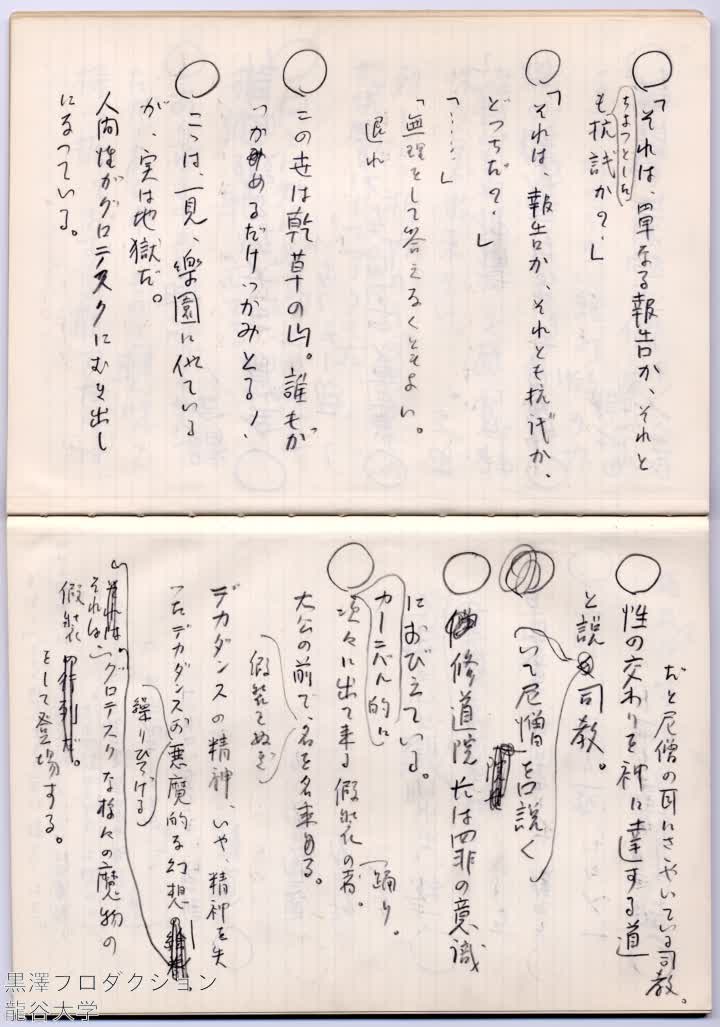 「それは、単なる報告か、それと
ちょっとした
も抗議か?」
「それは、報告か、それとも抗議か、
どっちだ?」
「……」
「無理をして答えなくともよい。
退れ
この世は乾草の山。誰もが
つかめるだけつかみとる!
こゝは、一見、樂園に似ている
が、実は地獄だ。
人間性がグロテスクにむき出し
になっている。
だと尼僧の耳にさゝやいている司教。
性の交わりを神に達する道
と説く司教。
いて尼僧を口説く
修道院 には罪の意識
におびえている。
カーニバル的に
次々に出て来る假裝の者。
踊り。
大公の前で、名を名乗る。
假裝をぬぎ
デカダンスの精神、いや、精神を失
ったデカダンスが悪魔的な幻想
繰りひろげる
それは、グロテスクな様々の魔物の
假裝
をして登場する。
黒澤プロダクション
龍谷大学